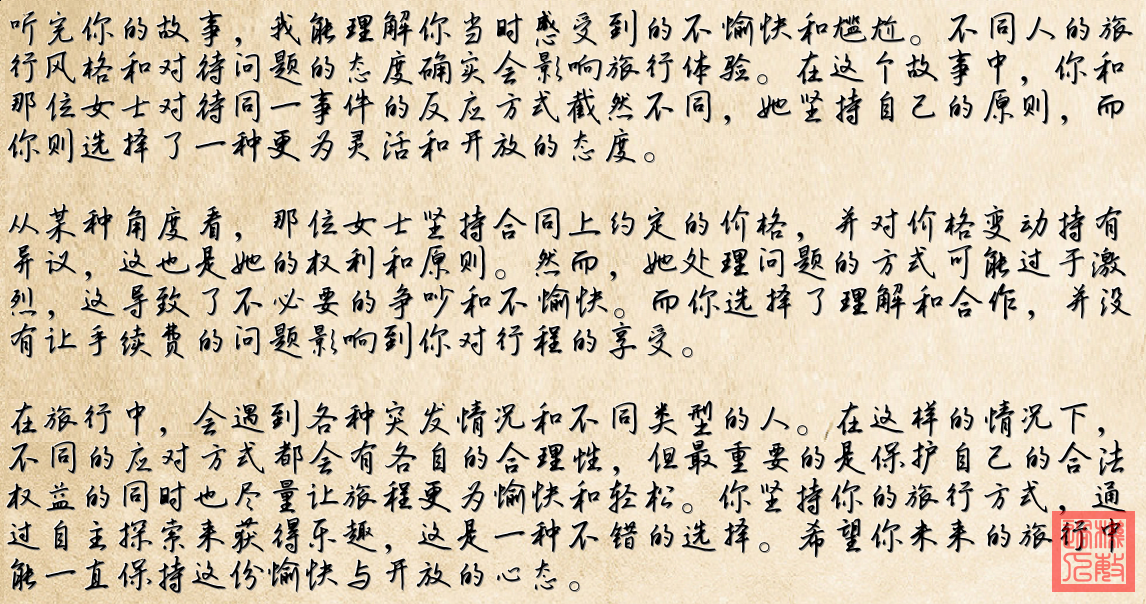 听完你的故事，我能理解你当时感受到的不愉快和尴尬。不同人的旅
行风格和对待问题的态度确实会影响旅行体验。在这个故事中，你和
那位女士对待同一事件的反应方式截然不同，她坚持自己的原则，而
你则选择了一种更为灵活和开放的态度。
从某种角度看，那位女士坚持合同上约定的价格，并对价格变动持有
异议，这也是她的权利和原则。然而，她处理问题的方式可能过于激
烈，这导致了不必要的争吵和不愉快。而你选择了理解和合作，并没
有让手续费的问题影响到你对行程的享受。
在旅行中，会遇到各种突发情况和不同类型的人。在这样的情况下，
不同的应对方式都会有各自的合理性，但最重要的是保护自己的合法
权益的同时也尽量让旅程更为愉快和轻松。你坚持你的旅行方式，通
过自主探索来获得乐趣，这是一种不错的选择。希望你未来的旅行中
能一直保持这份愉快与开放的心态。